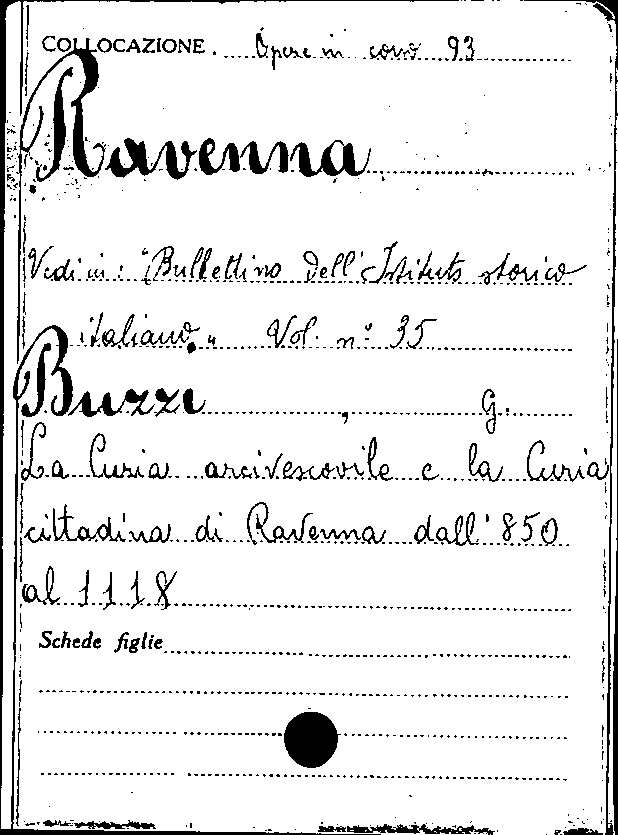 COLLOCAZIONE. Opere in corso 93
Ravenna
Vedi in: "Bullettino dell'Istituto storico
italiano" Vol. n° 35
Buzzi, G.
La Curia arcivescovile e la Curia
cittadina di Ravenna dall'850
al 1118
Schede figlie